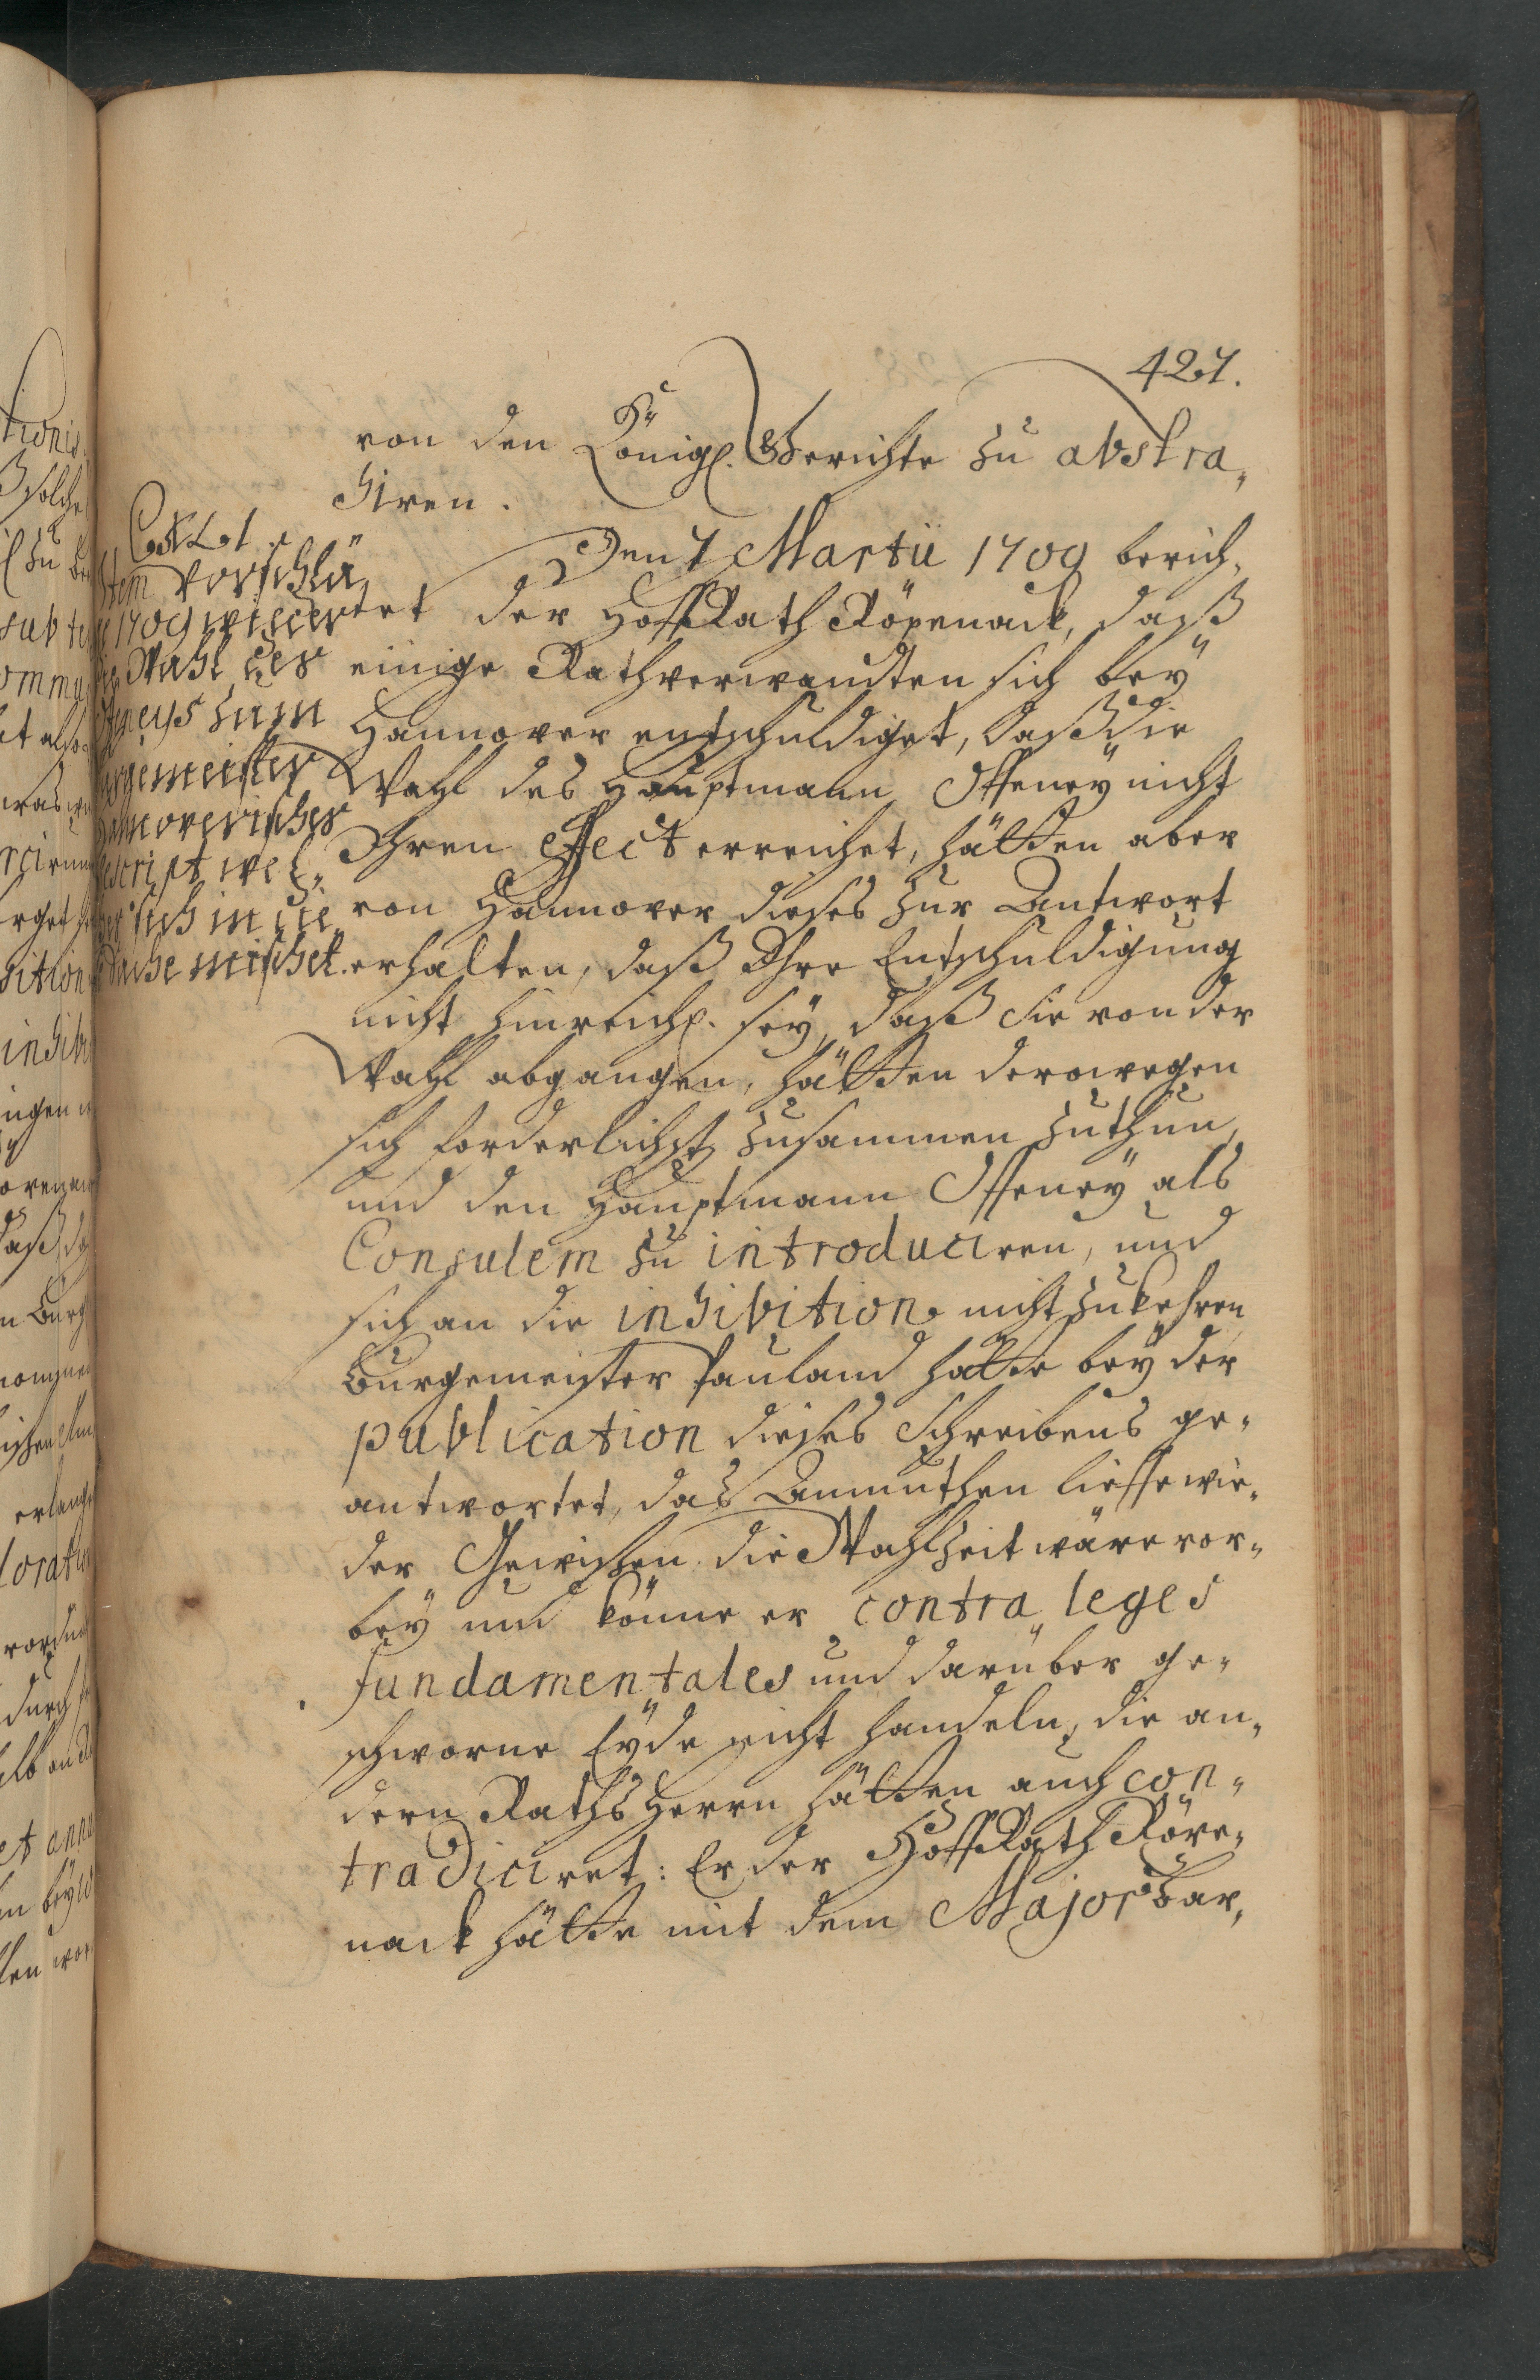 427.
von den Königl. Gerichte zu abstra„
hiren.
Den 7 Martii 1709 berich„
tet der HoffRath Röpenack, daß
einige Rathsverwandten sich bey
Hannover entschuldiget, daß die
Wahl des Hauptmann Offeney nicht
Ihren effect erreichet, hätten aber
von Hannover dieses zur Antwort
erhalten, daß Ihre Entschuldigung
nicht hinreichl. sey, daß Sie von der
Wahl abgangen, hätten derowegen
sich forderlichst zusammen zuthun,
und den Hauptmann Offeney als
Consulem zu introduciren, und
sich an die inhibition nicht zukehren
Burgemeister Pauland hätte bey der
publication dieses Schreibens ge„
antwortet, das Anmuthen lieffe wie„
der Gewißen die Wahlzeit wäre vor„
bey und könne er contra leges
fundamentales und darüber ge„
schworne Eyde nicht handeln, die an„
dern RathsHerrn hätten auch con„
tradiciret: Er der HoffRath Röpe„
nack hätte mit dem Major Bar„
vorschlä„
1709 wieder
Wahl des
neys zum
gemeister
noverischer
script wel„
sich in die
Sache mischet.